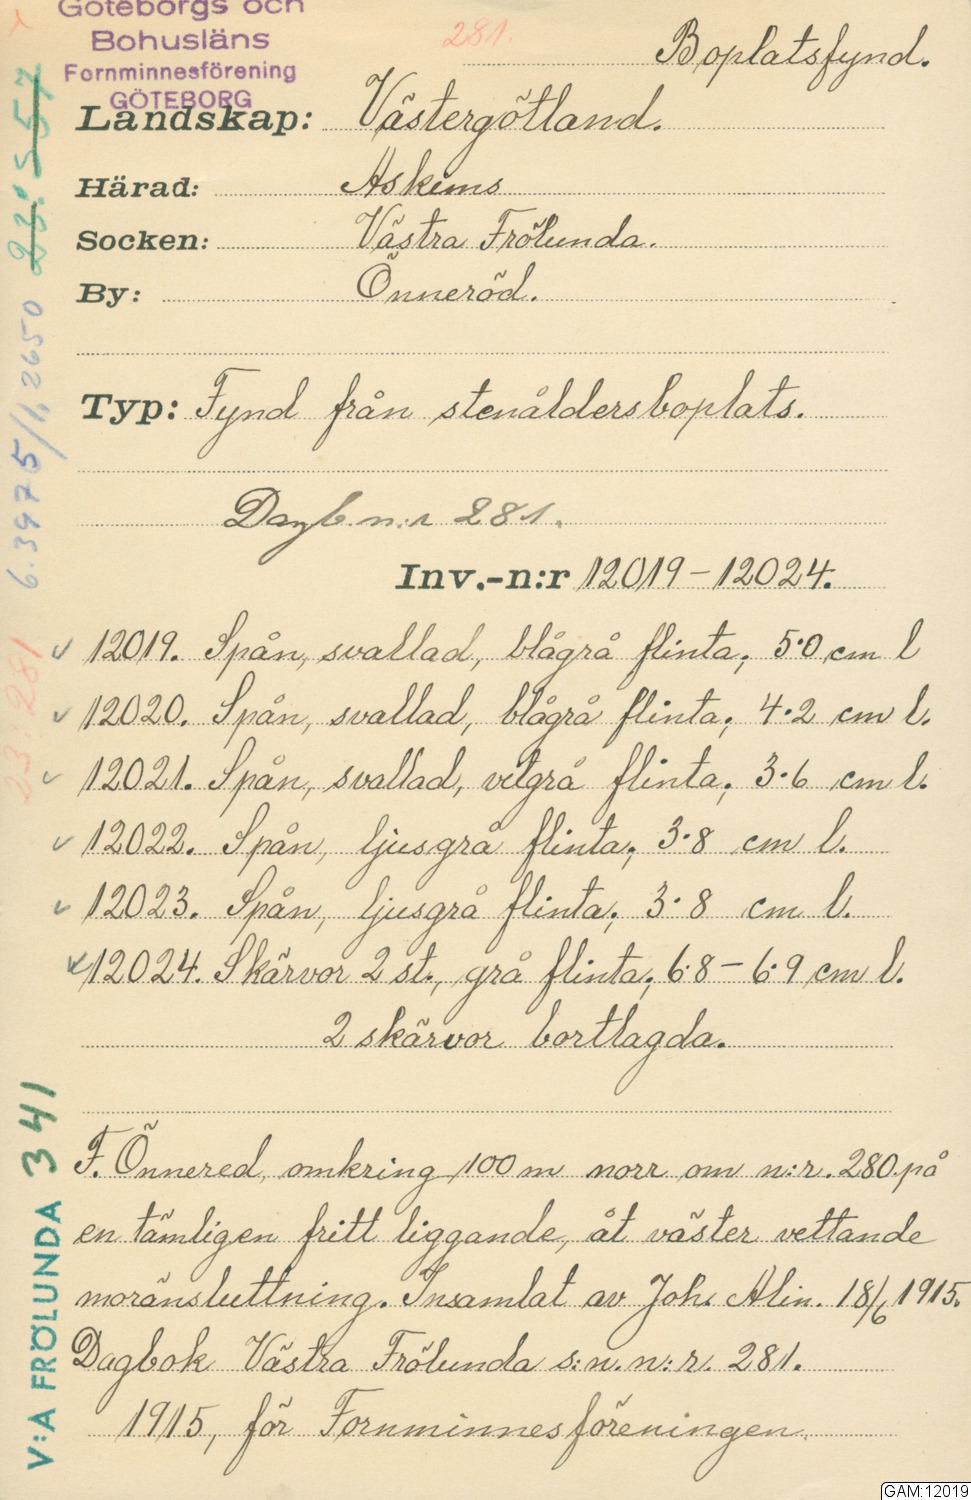 Göteborgs och
Bohusläns
Fornminnesförening
GÖTEBORG
281.
Boplatsfynd.
Landskap: Västergötland.
Härad: Askims
Socken: Västra Frölunda.
By: Önneröd.
Typ: Fynd från stenåldersboplats.
Dagb. n:r 281.
Inv.-n:r 12019-12024.
✓ 12019. Spån, svallad, blågrå flinta; 5·0 cm l
✓ 12020. Spån, svallad, blågrå flinta; 4·2 cm l.
✓ 12021. Spån, svallad, vitgrå flinta; 3·6 cm l.
✓ 12022. Spån, ljusgrå flinta; 3·8 cm l.
✓ 12023. Spån, ljusgrå flinta; 3·8 cm l.
12024. Skärvor 2 st., grå flinta; 6·8-6·9 cm l.
2 skärvor bortlagda.
F. Önnered, omkring 100 m norr om n:r. 280 på
en tämligen fritt liggande, åt väster vettande
moränsluttning. Insamlat av Joh. Alin. 18/6 1915.
Dagbok Västra Frölunda s:n. n:r. 281.
1915, för Fornminnesföreningen.
V:A FRÖLUNDA 341
23:281
6.3975/1,2650
23:557
GAM:12019